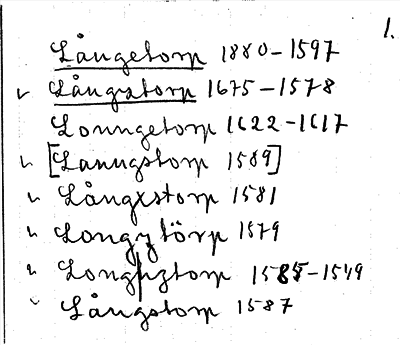 1.
Långetorp 1880-1597
Långstorp 1675-1578
Lonngetorp 1622-1617
[Lanngstorp 1589]
Långxstorp 1581
Longztörp 1579
1585-1549
Långstorp 1587